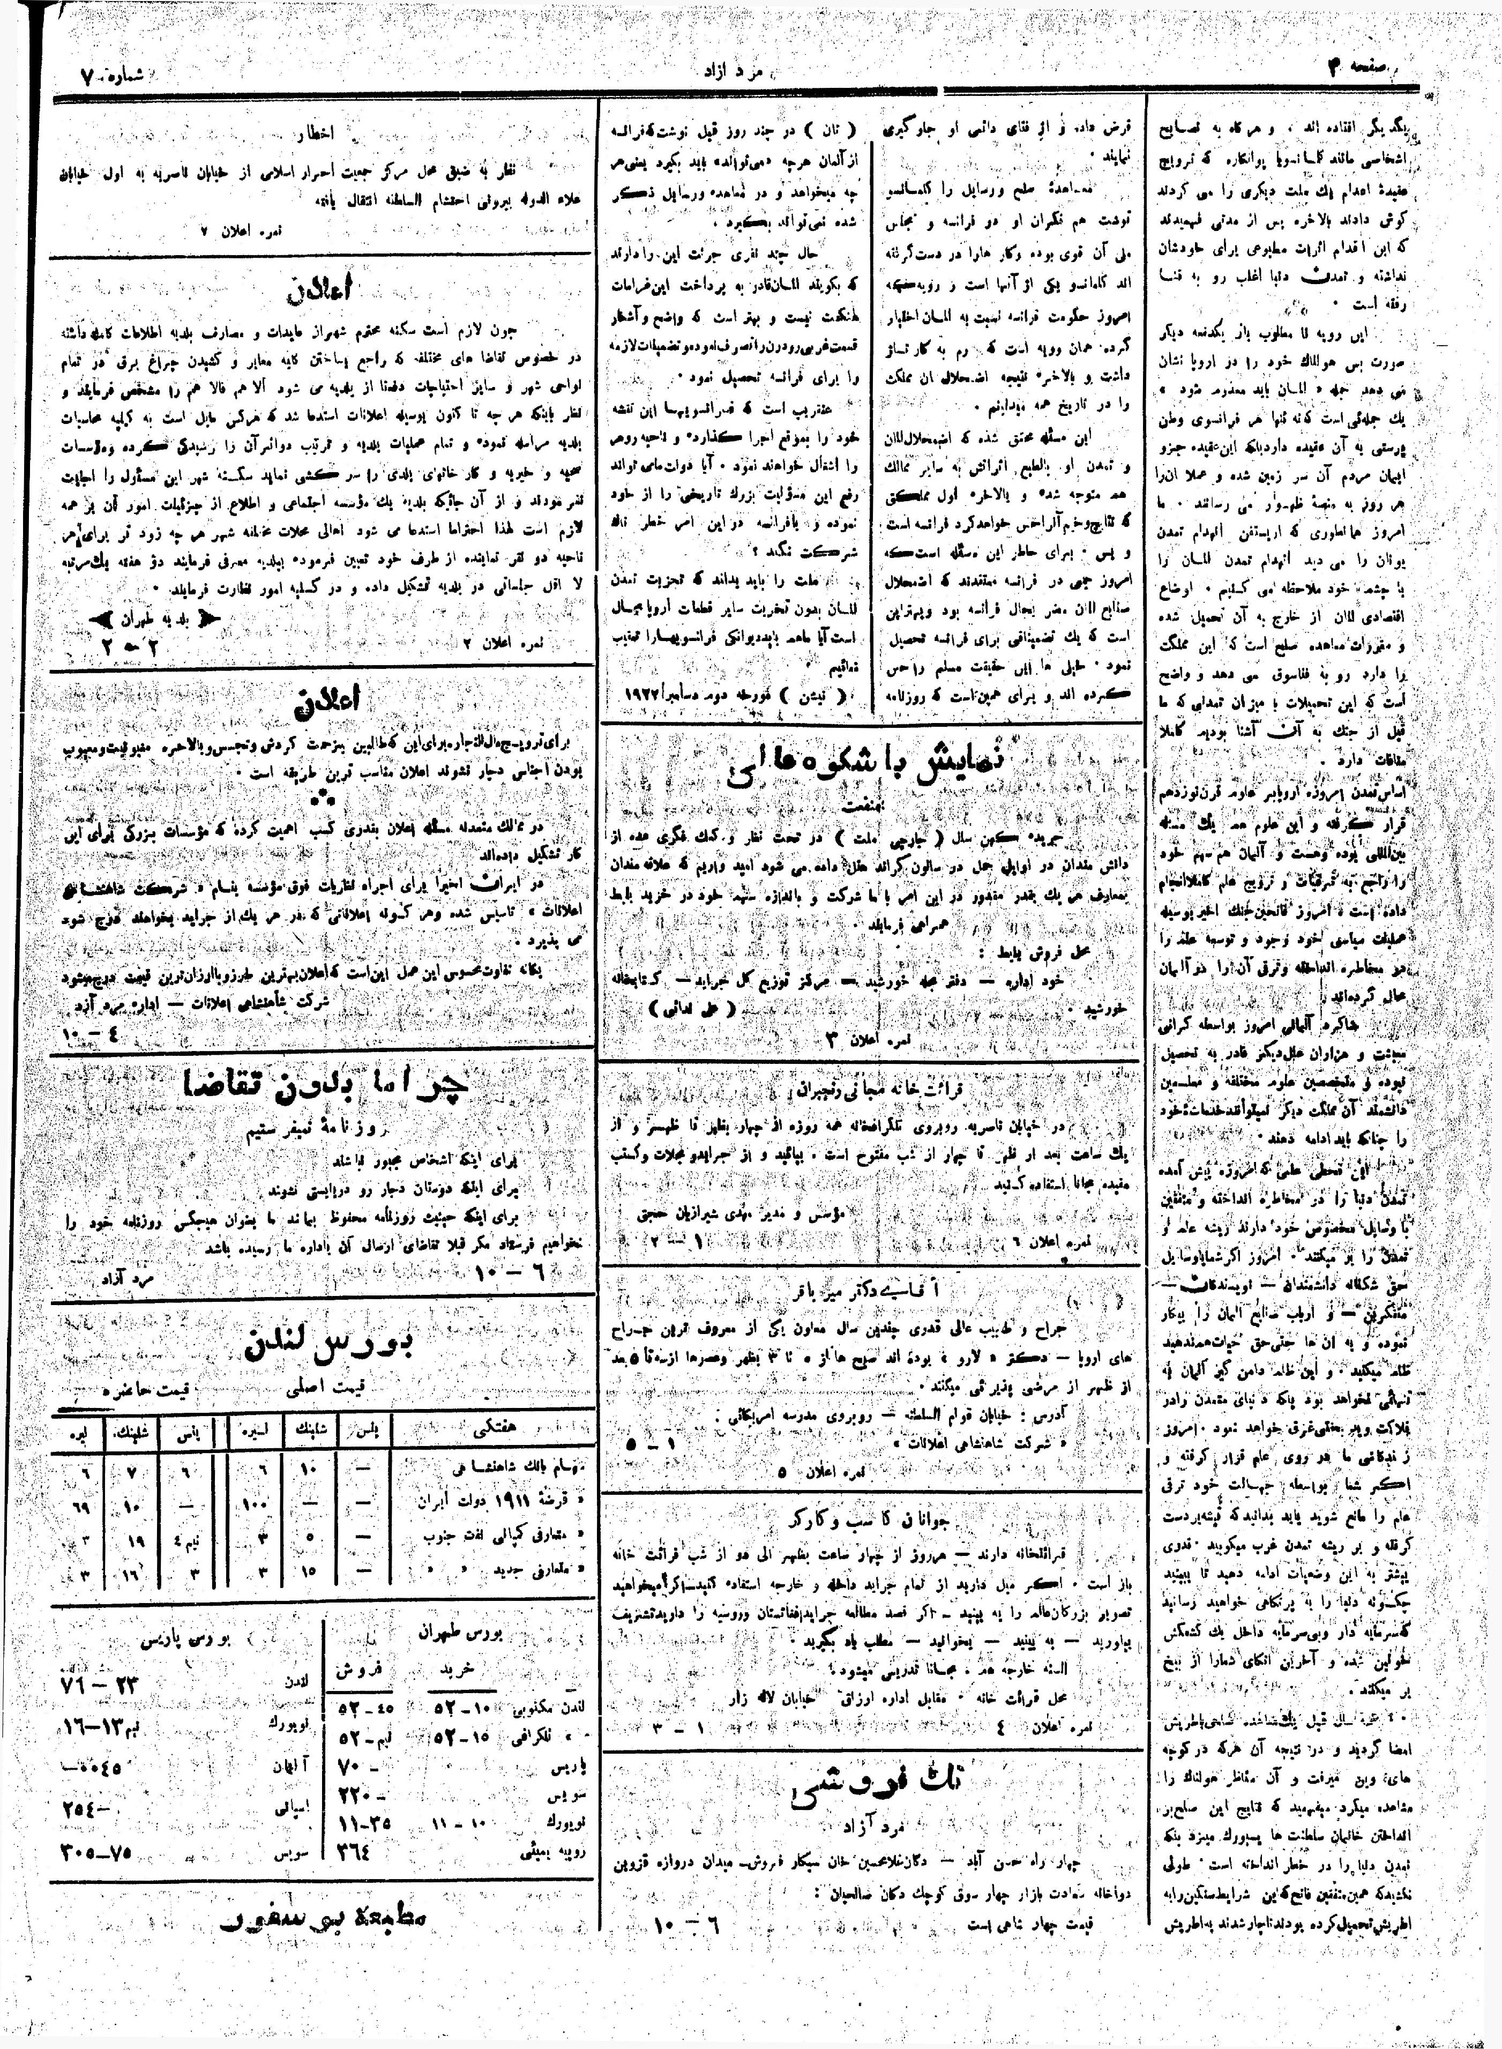 صفحه ۴
مرد آزاد
شماره ۷
یگدیگر افتاده اند ، و هرگاه به نصایح
اشخاصی مانند کلمانسو یا پوانکاره که ترویج
عقیدهٔ اعدام یك ملت دیگری را می کردند
گوش دادند بالاخره پس از مدتی فهمیدند
که این اقدام اثرات مطبوعی برای خودشان
نداشته و تمدن دنیا اغلب رو به فنا
رفته است .
این رویه نا مطلوب باز یکدفعه دیگر
صورت بس هولناك خود را در اروپا نشان
می دهد جمله « المان باید معدوم شود »
یك جمله‌ئی است که نه تنها هر فرانسوی وطن
پرستی به آن عقیده دارد بلکه این عقیده جزو
ایمان مردم آن سر زمین شده و عملا ان را
هر روز به منصهٔ ظهور می رسانند . ما
امروز همانطوری که اریستفن انهدام تمدن
یونان را می دید انهدام تمدن المان را
با چشمه خود ملاحظه می کنیم . اوضاع
اقتصادی المان از خارج به آن تحمیل شده
و مقررات معاهده صلح است که این مملکت
را دارد رو به فنا سوق می دهد و واضح
است که این تحمیلات با میزان تمدنی که ما
قبل از جنك به آن آشنا بودیم کاملا
منافات دارد .
اساس تمدن امروزه اروپا بر علوم قرن نوزدهم
قرار گرفته و این علوم همه یك مسئله
بین‌المللی بوده و هست و آلمان هم سهم خود
را راجع به ترقیات و ترویج علم کاملا انجام
داده است ، امروز فاتحین جنك اخیر بوسیله
عملیات سیاسی خود وجود و توسعه علم را
در مخاطره انداخته و ترقی آن را در آلمان
محال کرده‌اند
شاگرد آلمانی امروز بواسطه گرانی
معیشت و هزاران علل دیگر قادر به تحصیل
نبوده و متخصصین علوم مختلفه و معلمین
دانشمند آن مملکت دیگر نمیتوانند خدمات خود
را چنانکه باید ادامه دهند .
این قحطی علمی که امروزه پیش آمده
تمدن دنیا را در مخاطره انداخته و متفقین
با وسایل مخصوص خود دارند ریشه علم و
تمدن را بر میکنند . امروز اگر شما با وسایل
حق شکنانه دانشمندان — نویسندگان —
متفکرین — و ارباب صنایع المان را بیکار
نموده و به ان ها حتی حق حیات هم ندهید
ظلم میکنید . و این ظلم دامن گیر آلمان به
تنهائی نخواهد بود بلکه دنیای متمدن را در
فلاکت و بدبختی غرق خواهد نمود . امروز
زندگانی ما بر روی علم قرار گرفته و
اگر شما بواسطه جهالت خود ترقی
علم را مانع شوید باید بدانید که تیشه بردست
گرفته و بر ریشه تمدن غرب میکوبید . قدری
بیشتر به این وضعیات ادامه دهید تا ببینید
چگونه دنیا را به پرتگاهی خواهید رسانید
که سرمایه دار و بی سرمایه داخل یك کشمکش
خونین شده و آخرین اتکای شما را از بیخ
بر میکند .
سال قبل یك معاهده صلحی با اطریش
امضا گردید و در نتیجه آن هرکه در کوچه
های وین میرفت و آن مناظر هولناك را
مشاهده میکرد میفهمید که نتایج این صلح بر
انداختن خاندان سلطنت ها پسبورك میبرد بلکه
تمدن دنیا را در خطر انداخته است . طولی
نکشید که همین متفقین فاتح که این شرایط سنگین را به
اطریش تحمیل کرده بودند ناچار شدند به اطریش
قرض داده و از فنای دائمی او جلوگیری
نمایند .
معاهدهٔ صلح ورسایل را کلمانسو
نوشت هم فکران او در فرانسه و مجلس
ملی آن قوی بوده و کار ها را در دست گرفته
اند کلمانسو یکی از آنها است و رویه‌ که
امروز حکومت فرانسه نسبت به المان اختیار
کرده همان رویه است که رم به کارتاژ
داشت و بالاخره نتیجه اضمحلال ان مملکت
را در تاریخ همه میدانیم .
این مسئله محقق شده که اضمحلال المان
و تمدن او بالطبع اثراتش به سایر ممالك
هم متوجه شده و بالاخره اول مملکتی
که نتایج وخیم آنرا حس خواهد کرد فرانسه است
و بس . برای خاطر این مسئله است که
امروز جمعی در فرانسه معتقدند که اضمحلال
صنایع المان مضر بحال فرانسه بود و بهتر این
است که یك تضمیناتی برای فرانسه تحصیل
نمود . خیلی ها این حقیقت مسلم را حس
کرده اند و برای همین است که روزنامه
( تان ) در چند روز قبل نوشت که فرانسه
از آلمان هرچه «می‌تواند» باید بگیرد یعنی هر
چه میخواهد و در معاهده ورسایل ذکر
شده نمی تواند بگیرد .
حال چند نفری جرئت این را دارند
که بگویند المان قادر به پرداخت این غرامات
هنگفت نیست و بهتر است که واضح و آشکار
قسمت غربی رود رن را تصرف نموده و تضمینات لازمه
را برای فرانسه تحصیل نمود .
عنقریب است که فرانسویها این نقشه
خود را بموقع اجرا گذارده و ناحیه روهر
را اشغال خواهند نمود . آیا دولت ما می تواند
رفع این مسؤلیت بزرك تاریخی را از خود
نموده و با فرانسه در این امر خطر ناك
شرکت نکند ؟
ملت را باید بداند که تخریب تمدن
المان بدون تخریب سایر قطعات اروپا محال
است آیا ما هم باید دیوانگی فرانسویها را تعقیب
نمائیم
( نیشن ) مورخه دوم دسامبر ۱۹۲۲
نمایش باشکوه عالی
بمنفعت
جریده کهن سال ( چارچی ملت ) در تحت نظر و کمك فکری عده از
دانش مندان در اوایل حمل در سالون گراند هتل داده می شود امید واریم که علاقه مندان
بمعارف هر یك بقدر مقدور در این امر با ما شرکت و باندازه سهم خود در خرید بلیط
همراهی فرمایند .
محل فروش بلیط :
خود اداره — دفتر مجله خورشید — مرکز توزیع کل جراید — کتابخانه
خورشید .
( علی فدائی )
نمره اعلان ۳
قرائت خانه مجانی رنجبران
در خیابان ناصریه روبروی تلگرافخانه همه روزه از چهار بظهر تا ظهر و از
یك ساعت بعد از ظهر تا چهار از شب مفتوح است . بیائید و از جراید و مجلات و کتب
مفیده مجانا استفاده کنید
مؤسس و مدیر مهدی شیرازیان حجتی
نمره اعلان ٦
۱ — ۲
آقای دکتر میر باقر
جراح و طبیب عالی قدری چندین سال معاون یکی از معروف ترین جراح
های اروپا — دکتر « لارو » بوده اند صبح ها از ٥ تا ۳ بظهر و عصرها از سه تا ٥ بعد
از ظهر از مرضی پذیرائی میکنند .
آدرس : خیابان قوام السلطنه — روبروی مدرسه امریکائی .
« شرکت شاهنشاهی اعلانات »
۱ — ٥
نمره اعلان ٥
جوانان کاسب و کارگر
قرائتخانه دارند — هرروز از چهار ساعت بظهر الی دو از شب قرائت خانه
باز است . اگر میل دارید از تمام جراید داخله و خارجه استفاده کنید — اگر میخواهید
تصویر بزرگان عالم را به بینید — اگر قصد مطالعه جراید افغانستان و روسیه را دارید تشریف
بیاورید — به بینید — بخوانید — مطلب یاد بگیرید .
السنه خارجه هم ، مجانا تدریس میشود .
محل قرائت خانه . مقابل اداره ارزاق خیابان لاله زار
نمره اعلان ٤
۱ — ۳
تك فروشی
مرد آزاد
چهار راه حسن آباد — دکان غلامحسین خان سیگار فروش — میدان دروازه قزوین
دواخانه سعادت بازار چهار سوق کوچك دکان صالحیان :
قیمت چهار شاهی است
٦ — ۱۰
اخطار
نظر به ضیق محل مرکز جمعیت احرار اسلامی از خیابان ناصریه به اول خیابان
علاء الدوله بیرونی احتشام السلطنه انتقال یافته
نمره اعلان ۷
اعلان
چون لازم است سکنه محترم شهر از عایدات و مصارف بلدیه اطلاعات کامله داشته
در خصوص تقاضا های مختلفه که راجع بساختن کلیه معابر و کشیدن چراغ برق در تمام
نواحی شهر و سایر احتیاجات دفعتا از بلدیه می شود الاهم فالاهم را مشخص فرمایند و
نظر باینکه هر چه تا کنون بوسیله اعلانات استدعا شد که هرکس مایل است به کلیه محاسبات
بلدیه مراسله نموده و تمام عملیات بلدیه و ترتیب دوائر آن را رسیدگی کرده و مؤسسات
صحیه و خیریه و کار خانهای بلدی را سر کشی نماید سکنه شهر این مسؤل را اجابت
نفرمودند و از آن جائیکه بلدیه یك مؤسسه اجتماعی و اطلاع از جزئیات امور آن بر همه
لازم است لهذا احتراما استدعا می شود اهالی محلات مختلفه شهر هر چه زود تر برای هر
ناحیه دو نفر نماینده از طرف خود تعیین فرموده ببلدیه معرفی فرمایند در هفته یك مرتبه
لا اقل جلساتی در بلدیه تشکیل داده و در کلیه امور نظارت فرمایند .
بلدیه طهران
نمره اعلان ۲
۲ — ۲
اعلان
برای ترویج مال التجاره برای این که طالبین بزحمت گردش و تجسس و بالاخره مغبونیت و معیوب
بودن اجناس دچار نشوند اعلان مناسب ترین طریقه است .
در ممالك متمدنه مسئله اعلان بقدری کسب اهمیت کرده که مؤسسات بزرگی برای این
کار تشکیل داده‌اند
در ایران اخیرا برای اجراء نظریات فوق مؤسسه بنام « شرکت شاهنشاهی
اعلانات » تاسیس شده و هر گونه اعلاناتی که در هر یك از جراید بخواهند درج شود
می پذیرد .
یگانه تفاوت محسوس این عمل این است که اعلان بهترین طرز و با ارزان ترین قیمت درج میشود
شرکت شاهنشاهی اعلانات — اداره مرد آزاد
٤ — ۱۰
چرا ما بدون تقاضا
روزنامهٔ نمیفرستیم
برای اینکه اشخاص مجبور نباشند
برای اینکه دوستان دچار رو دربایستی نشوند
برای اینکه حیثیت روزنامه محفوظ بماند ما بعنوان هیچکس روزنامه خود را
نخواهیم فرستاد مگر قبلا تقاضای ارسال آن باداره ما رسیده باشد
مرد آزاد
٦ — ۱۰
بورس لندن
قیمت اصلی
قیمت حاضره
هفتگی | پنس | شلینك | لیره | پنس | شلینك | لیره
سهام بانك شاهنشاهی | — | ۱۰ | ٦ | ٦ | ۷ | ٦
« قرضهٔ ۱۹۱۱ دولت ایران | — | — | ۱۰۰ | — | ۱۰ | ٦۹
« متعارفی کمپانی نفت جنوب | — | ٥ | ۳ | نیم ٤ | ۱۹ | ۳
« متعارفی جدید « « | — | ۱٥ | ۳ | ۳ | ۱٦ | ۳
بورس طهران
خرید
فروش
لندن مکتوبی ۱۰—٥۲ ٤٥—٥۲
« تلگرافی ۱٥—٥۲ نیم—٥۲
پاریس —۷۰
سویس —۲۲۰
نویورك ۱۰—۱۱ ۳٥—۱۱
روپیه بمبئی ۳٦٤
بورس پاریس
لندن ۲۳—۷٦
نویورك نیم۱۳—۱٦
آلمان ۰۰٤٥—
اسپانی —۲٥٤
سویس ۷٥—۳۰٥
مطبعه بوسفور